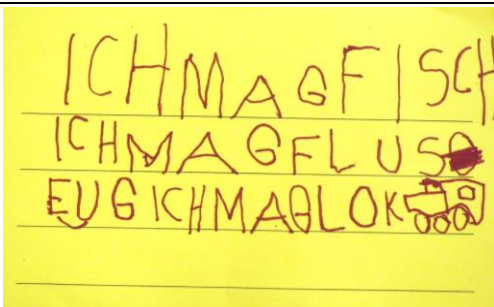 ICHMAGFISCH
ICHMAGFLUS
EUGICHMAGLOK